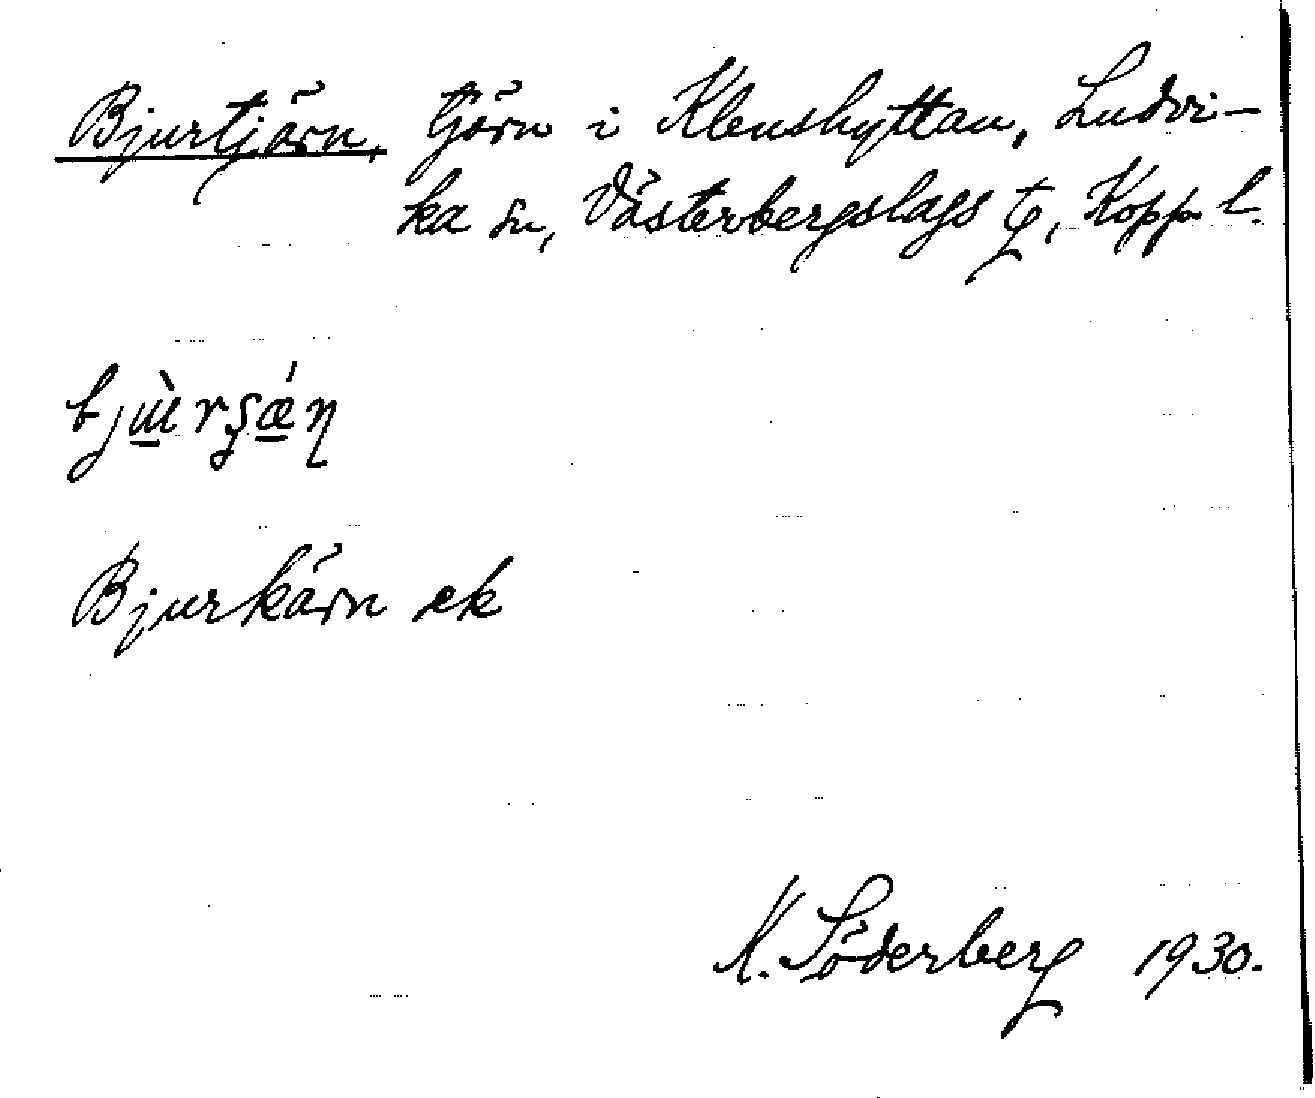 Bjurtjärn, tjärn i Klenshyttan, Ludvi-
ka sn, Västerbergslags tg, Kopp. l.
Bjurkärn ek
K. Söderberg 1930.